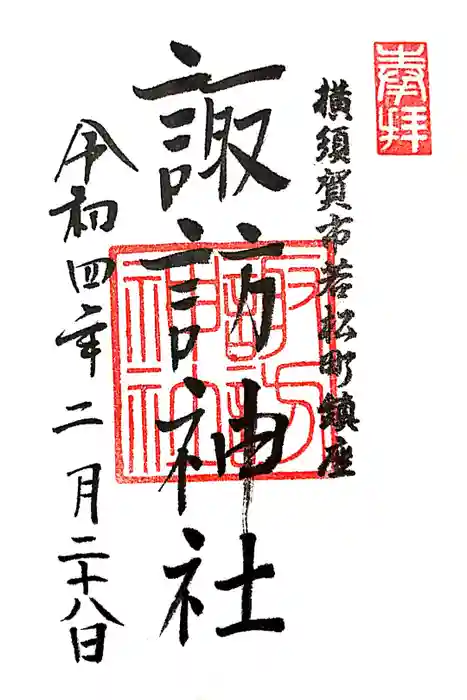 奉拝
横須賀市若松町鎮座
諏訪神社
諏訪神社
令和四年二月二十八日